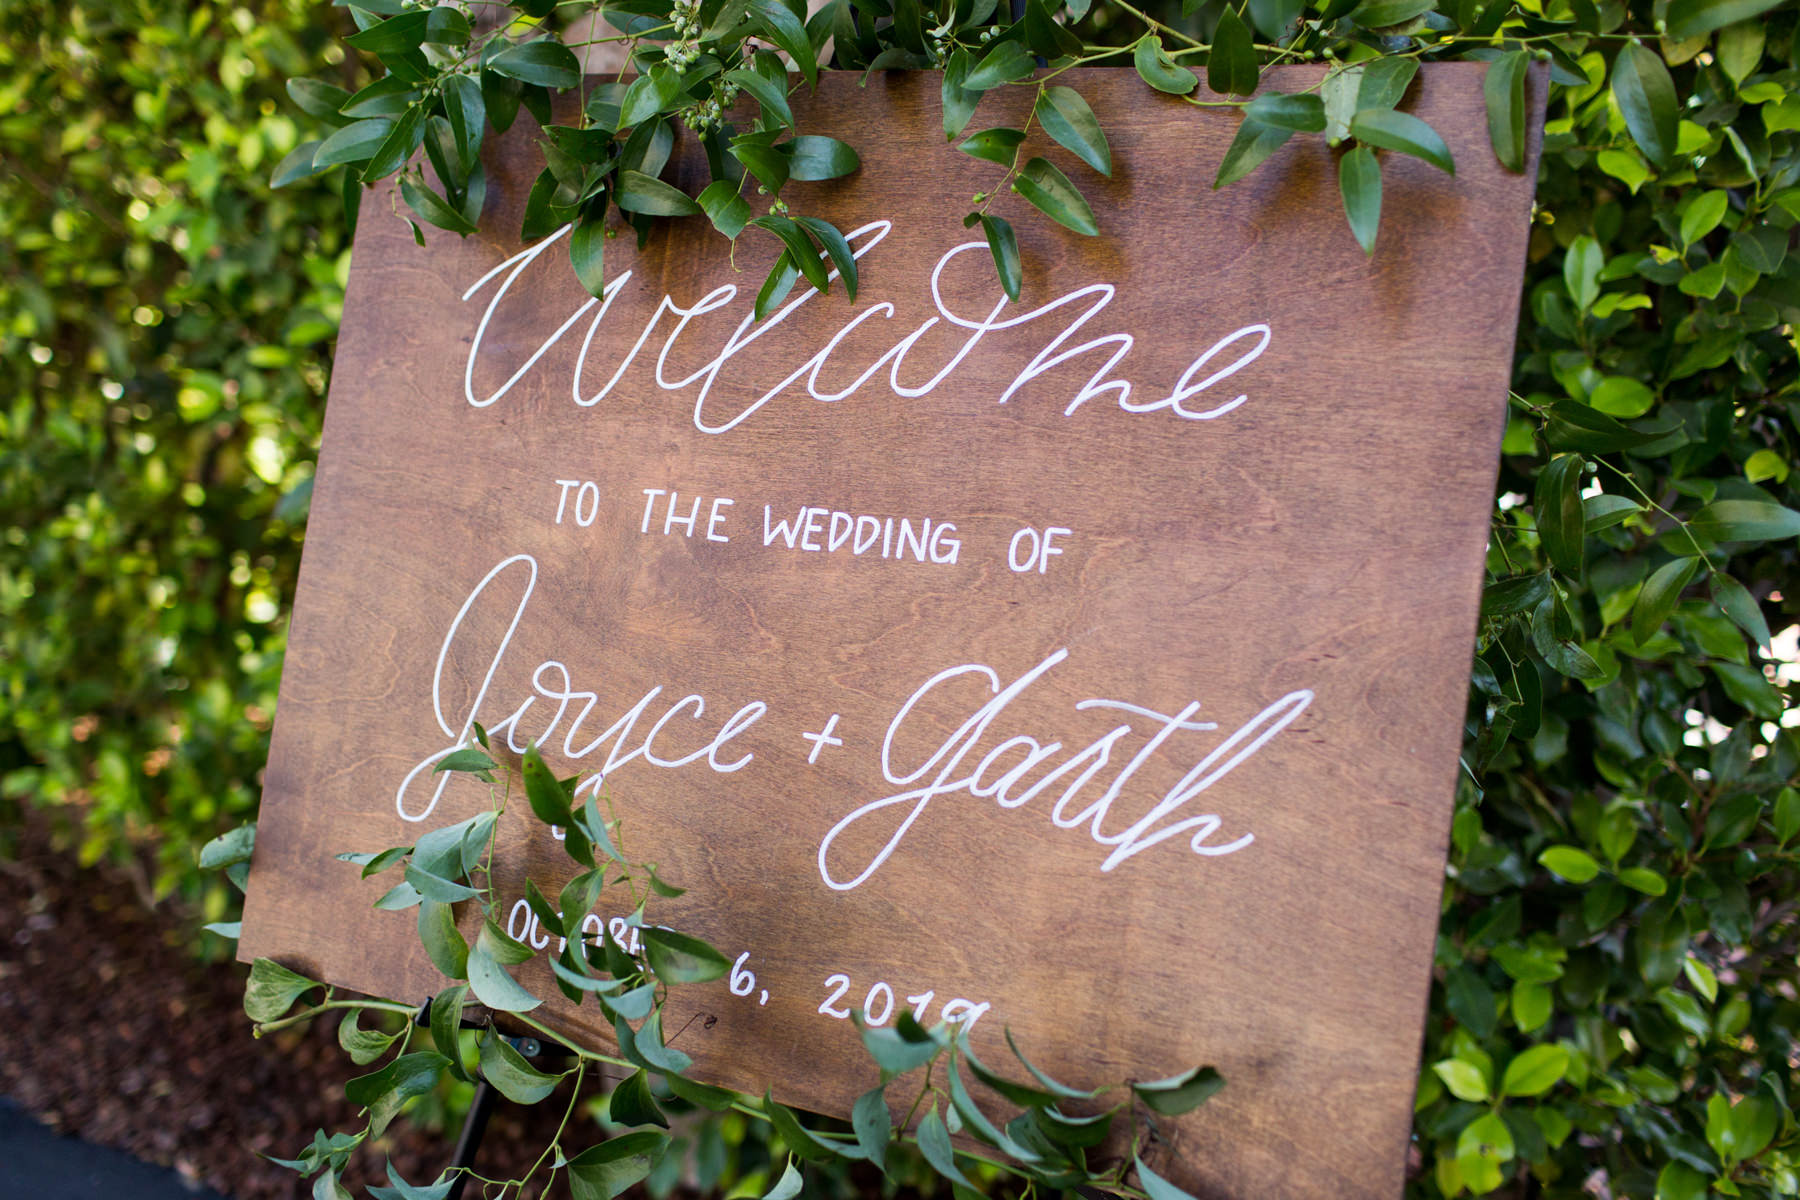 Welcome
TO THE WEDDING OF
Joyce + Garth
OCTOBER 6, 2019